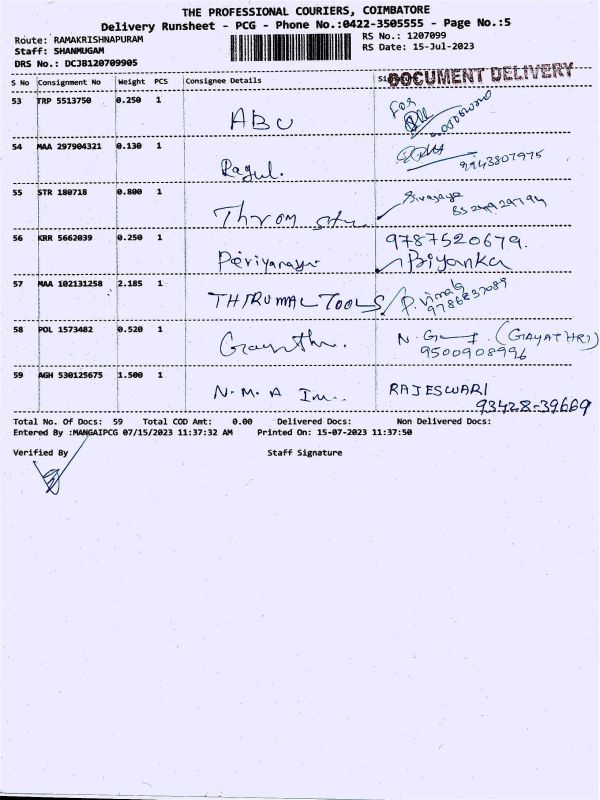 THE PROFESSIONAL COURIERS, COIMBATORE
Delivery Runsheet - PCG - Phone No.:0422-3505555 - Page No.:5
Route: RAMAKRISHNAPURAM
RS No.: 1207099
Staff: SHANMUGAM
RS Date: 15-Jul-2023
DRS No.: DCJB120709905
DOCUMENT DELIVERY
S No Consignment No Weight PCS Consignee Details
53 TRP 5513750 0.250 1 ABU For
54 MAA 297904321 0.130 1 Ragul. 9943807975
55 STR 180718 0.800 1 Throm
56 KRR 5662039 0.250 1 9787520679. Priyanka
57 MAA 102131258 2.185 1 THIRUMAL TOOLS P. Vimala
9786837089
58 POL 1573482 0.520 1 N. (GAYATHRI)
9500908996
59 AGH 530125675 1.500 1 N.M.A RAJESWARI
93428-39669
Total No. Of Docs: 59 Total COD Amt: 0.00 Delivered Docs: Non Delivered Docs:
Entered By :MANGAIPCG 07/15/2023 11:37:32 AM Printed On: 15-07-2023 11:37:50
Verified By Staff Signature